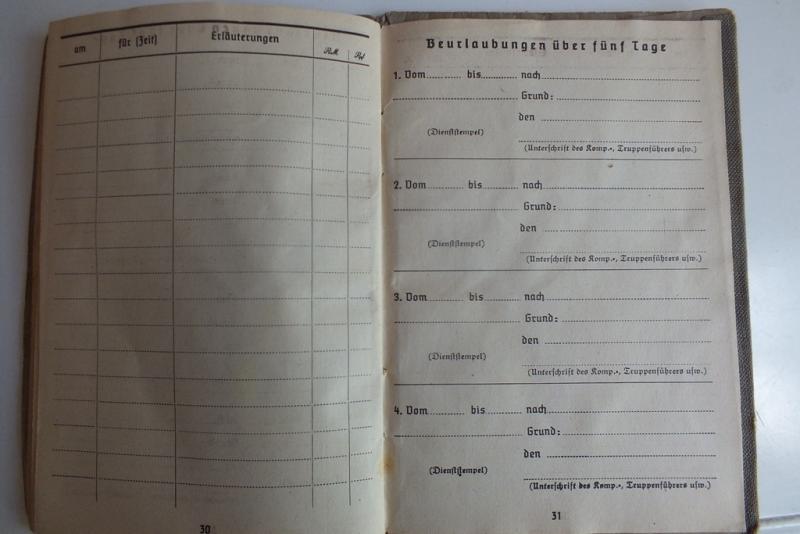 am für (Zeit) Erläuterungen RM. Rpf
30
Beurlaubungen über fünf Tage
1. Vom........ bis........ nach
Grund:
den
(Dienststempel)
(Unterschrift des Komp.-, Truppenführers usw.)
2. Vom........ bis........ nach
Grund:
den
(Dienststempel)
(Unterschrift des Komp.-, Truppenführers usw.)
3. Vom........ bis........ nach
Grund:
den
(Dienststempel)
(Unterschrift des Komp.-, Truppenführers usw.)
4. Vom........ bis........ nach
Grund:
den
(Dienststempel)
(Unterschrift des Komp.-, Truppenführers usw.)
31